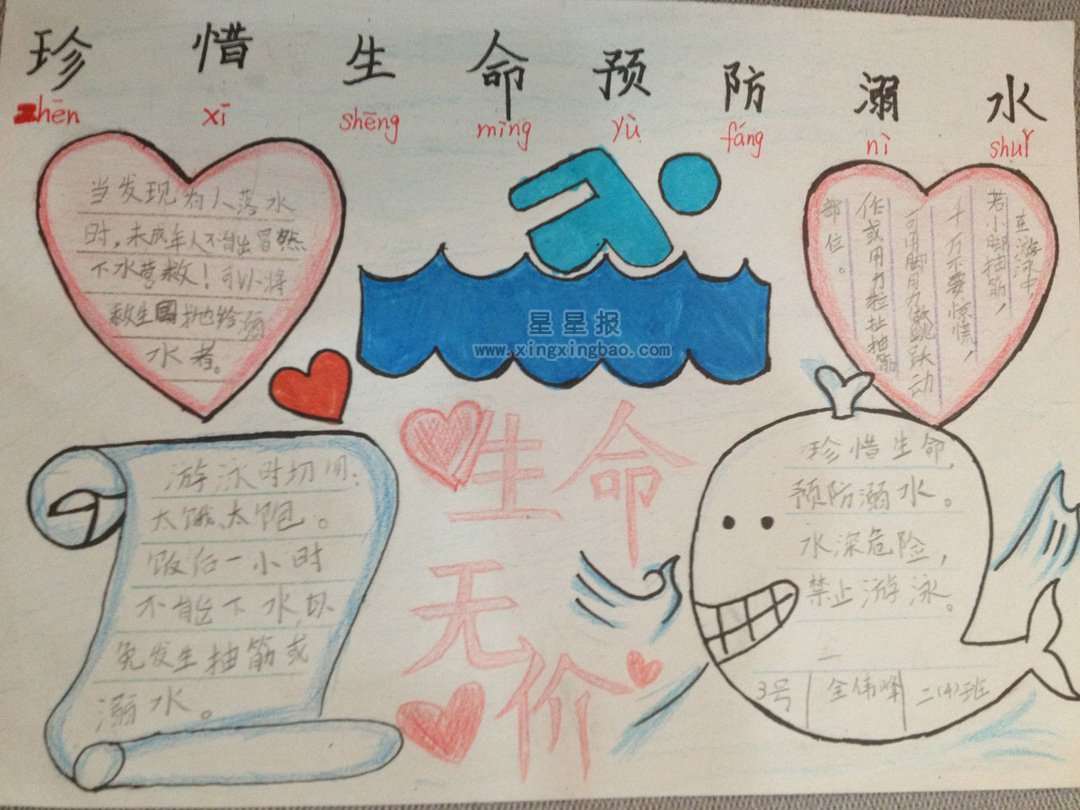 珍惜生命预防溺水
zhēn xī shēng mìng yù fáng nì shuǐ
当发现有人落水
时，未成年人不能出冒然
下水营救！可以将
救生圈抛给溺
水者。
在游泳中，
若小脚抽筋，
千万不要惊慌，
可用脚用力做蹬跃动
作或用力拉扯抽筋
部位。
星星报
www.xingxingbao.com
生命
无价
游泳时切闭：
太饿太饱。
饭后一小时
不能下水，以
免发生抽筋或
溺水。
珍惜生命，
预防溺水。
水深危险，
禁止游泳。
3号 金伟峰 二(4)班